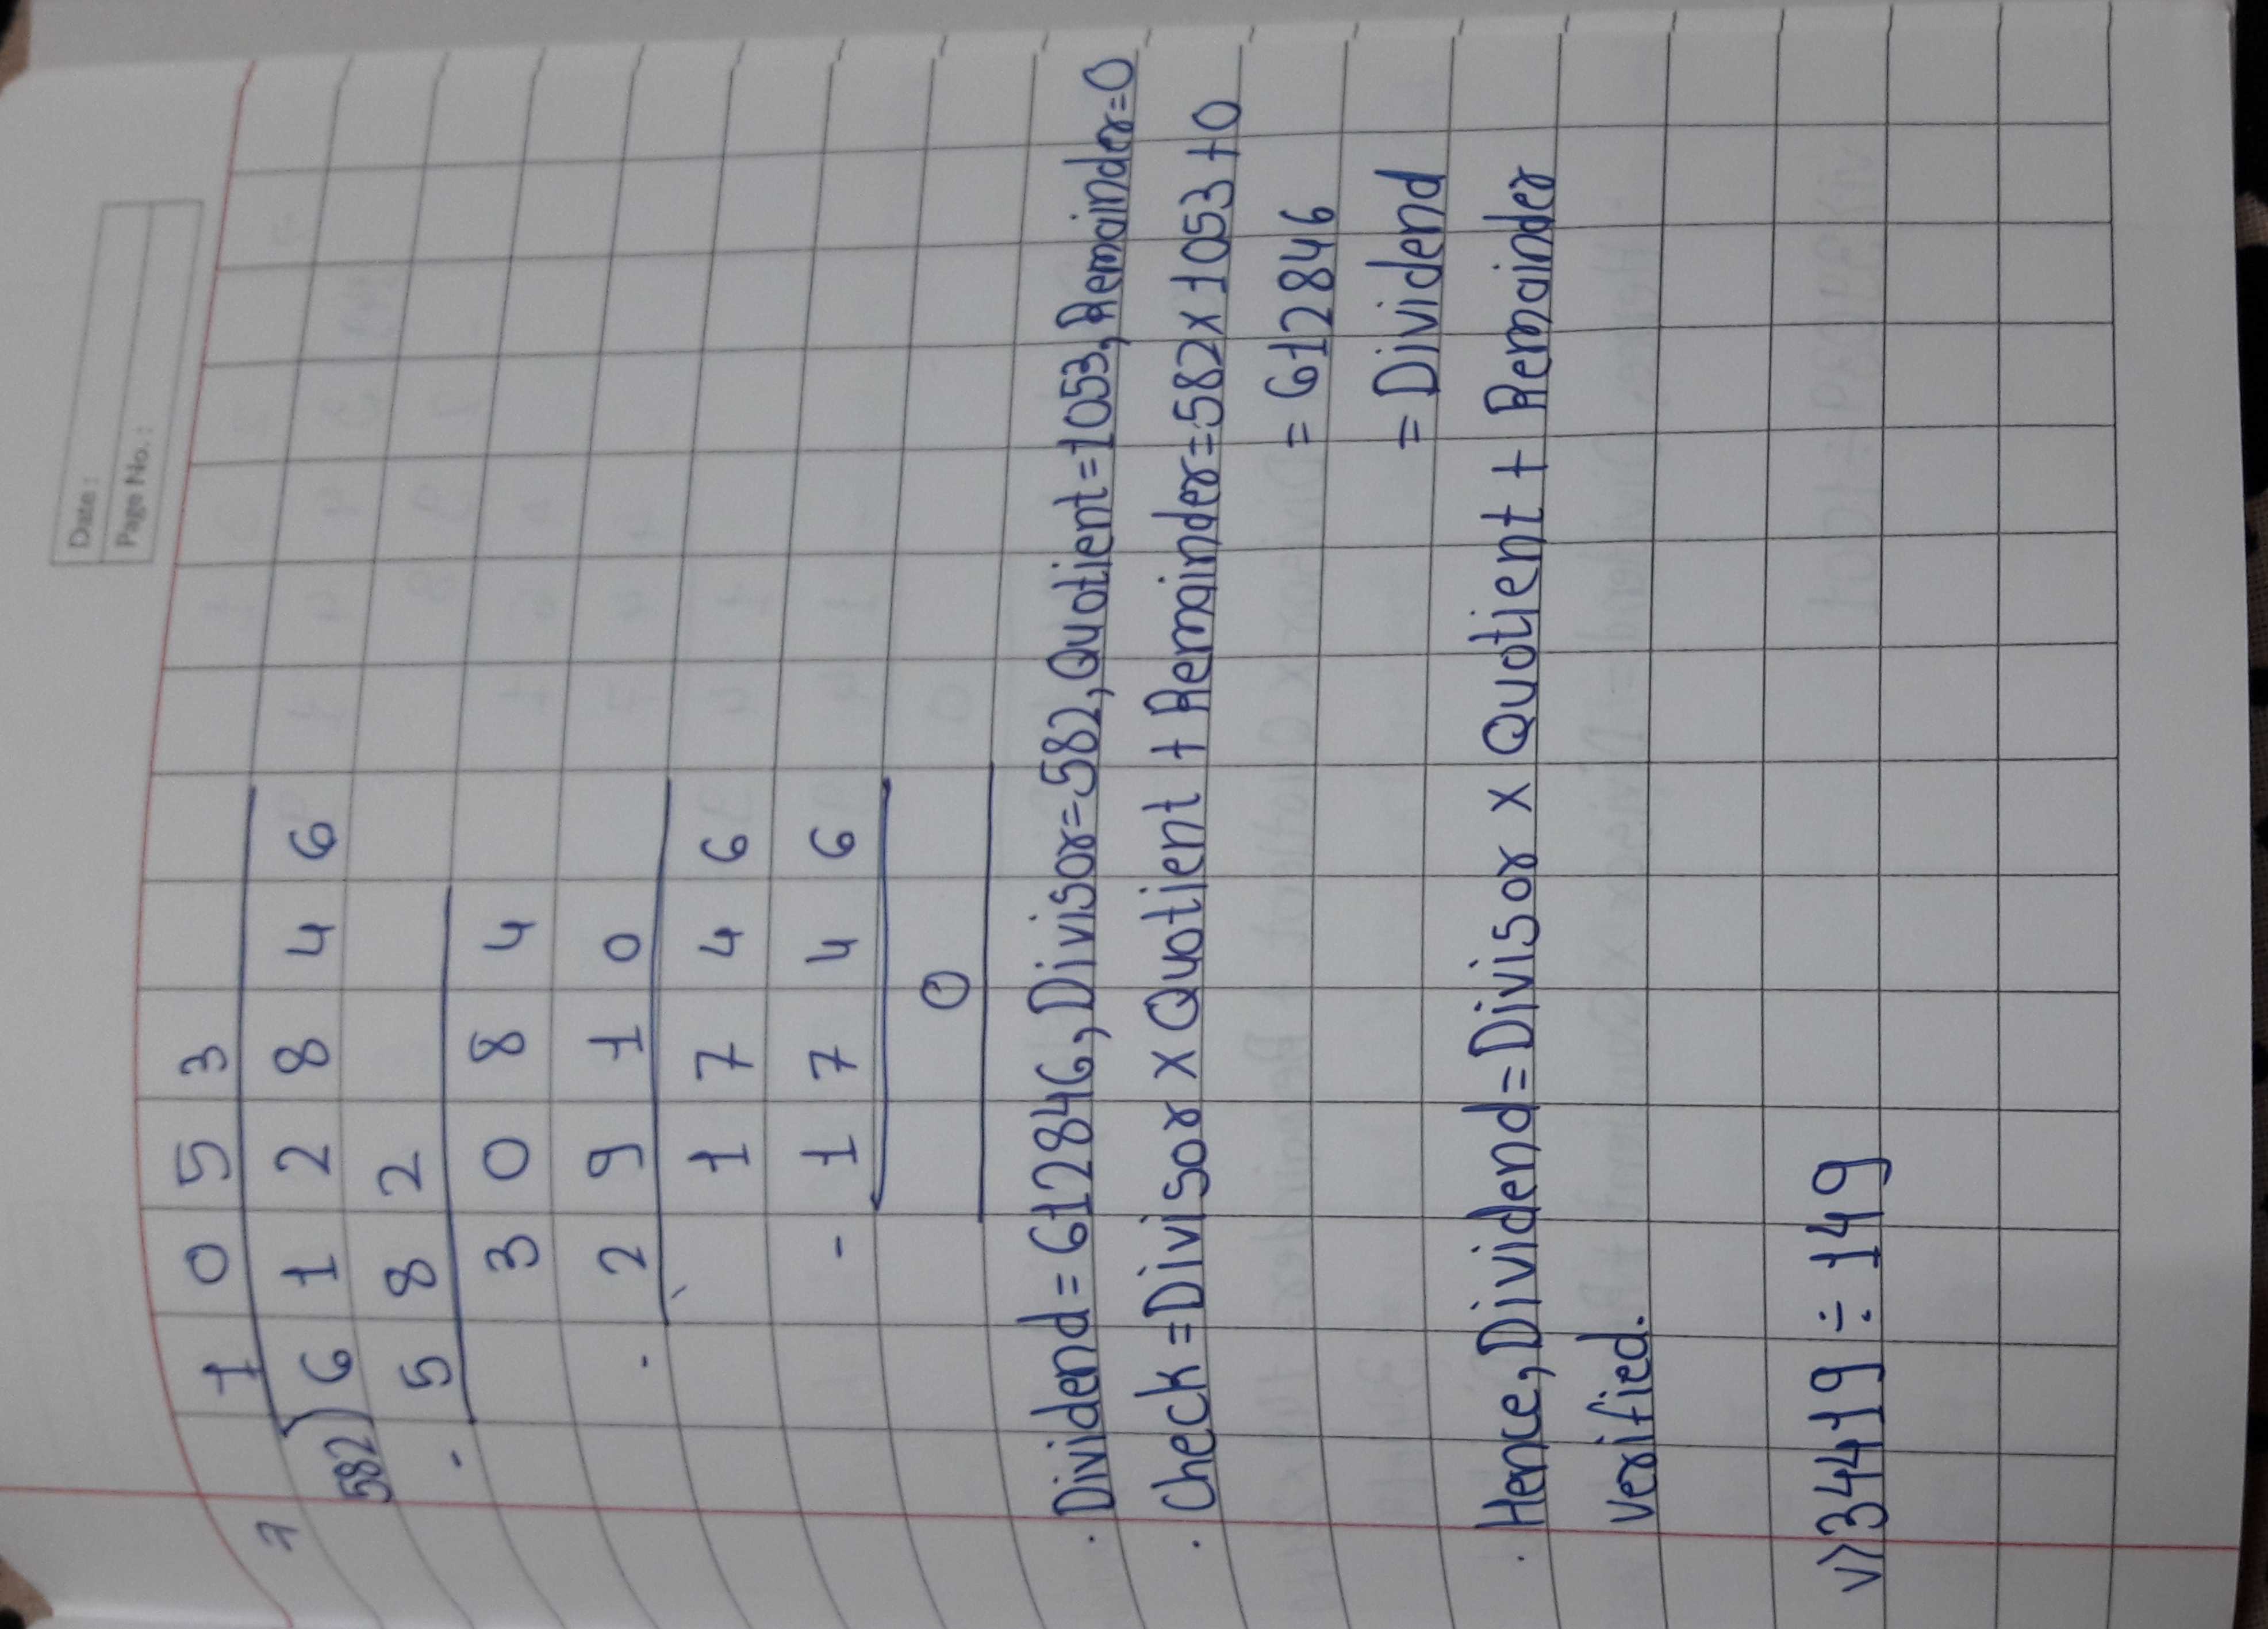 Date :
Page No. :
1 0 5 3
582) 6 1 2 8 4 6
- 5 8 2
3 0 8 4
- 2 9 1 0
1 7 4 6
- 1 7 4 6
0
. Dividend = 612846, Divisor=582, Quotient=1053, Remainder=0
. Check = Divisor x Quotient + Remainder=582 x 1053 + 0
= 612846
= Dividend
. Hence, Dividend = Divisor x Quotient + Remainder
verified.
v) 34419 ÷ 149